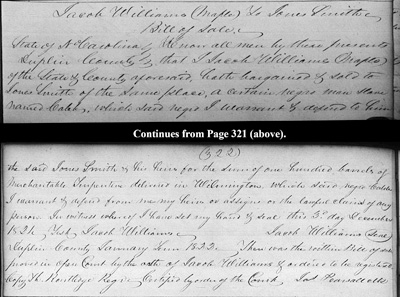 Jacob Williams (Maple) To Jones Smith
Bill of Sale.
State of N. Carolina Know all men by these presents
Duplin County that I Jacob Williams (Maple)
of the State & County aforesaid, hath bargained & sold to
Jones Smith of the same place, a certain negro man slave
named Caleb, which said negro I warrant & defend to him
Continues from Page 321 (above).
(322)
the said Jones Smith & his heirs for the sum of one hundred barrels of
Merchantable Turpentine delivered in Wilmington which said negro
I warrant & defend from me my heirs or assigns or the lawful claims of any
person. In witness whereof I have set my hand & seal this 3rd day December
1821. Jacob Williams. Jacob Williams (Seal)
Duplin County January Term 1822. Then was the within Bill of Sale
proved in open Court by the oath of Jacob Williams & ordered to be registered
Copy Routledge Regr. Certified by order of the Court Jas Pearsall clk